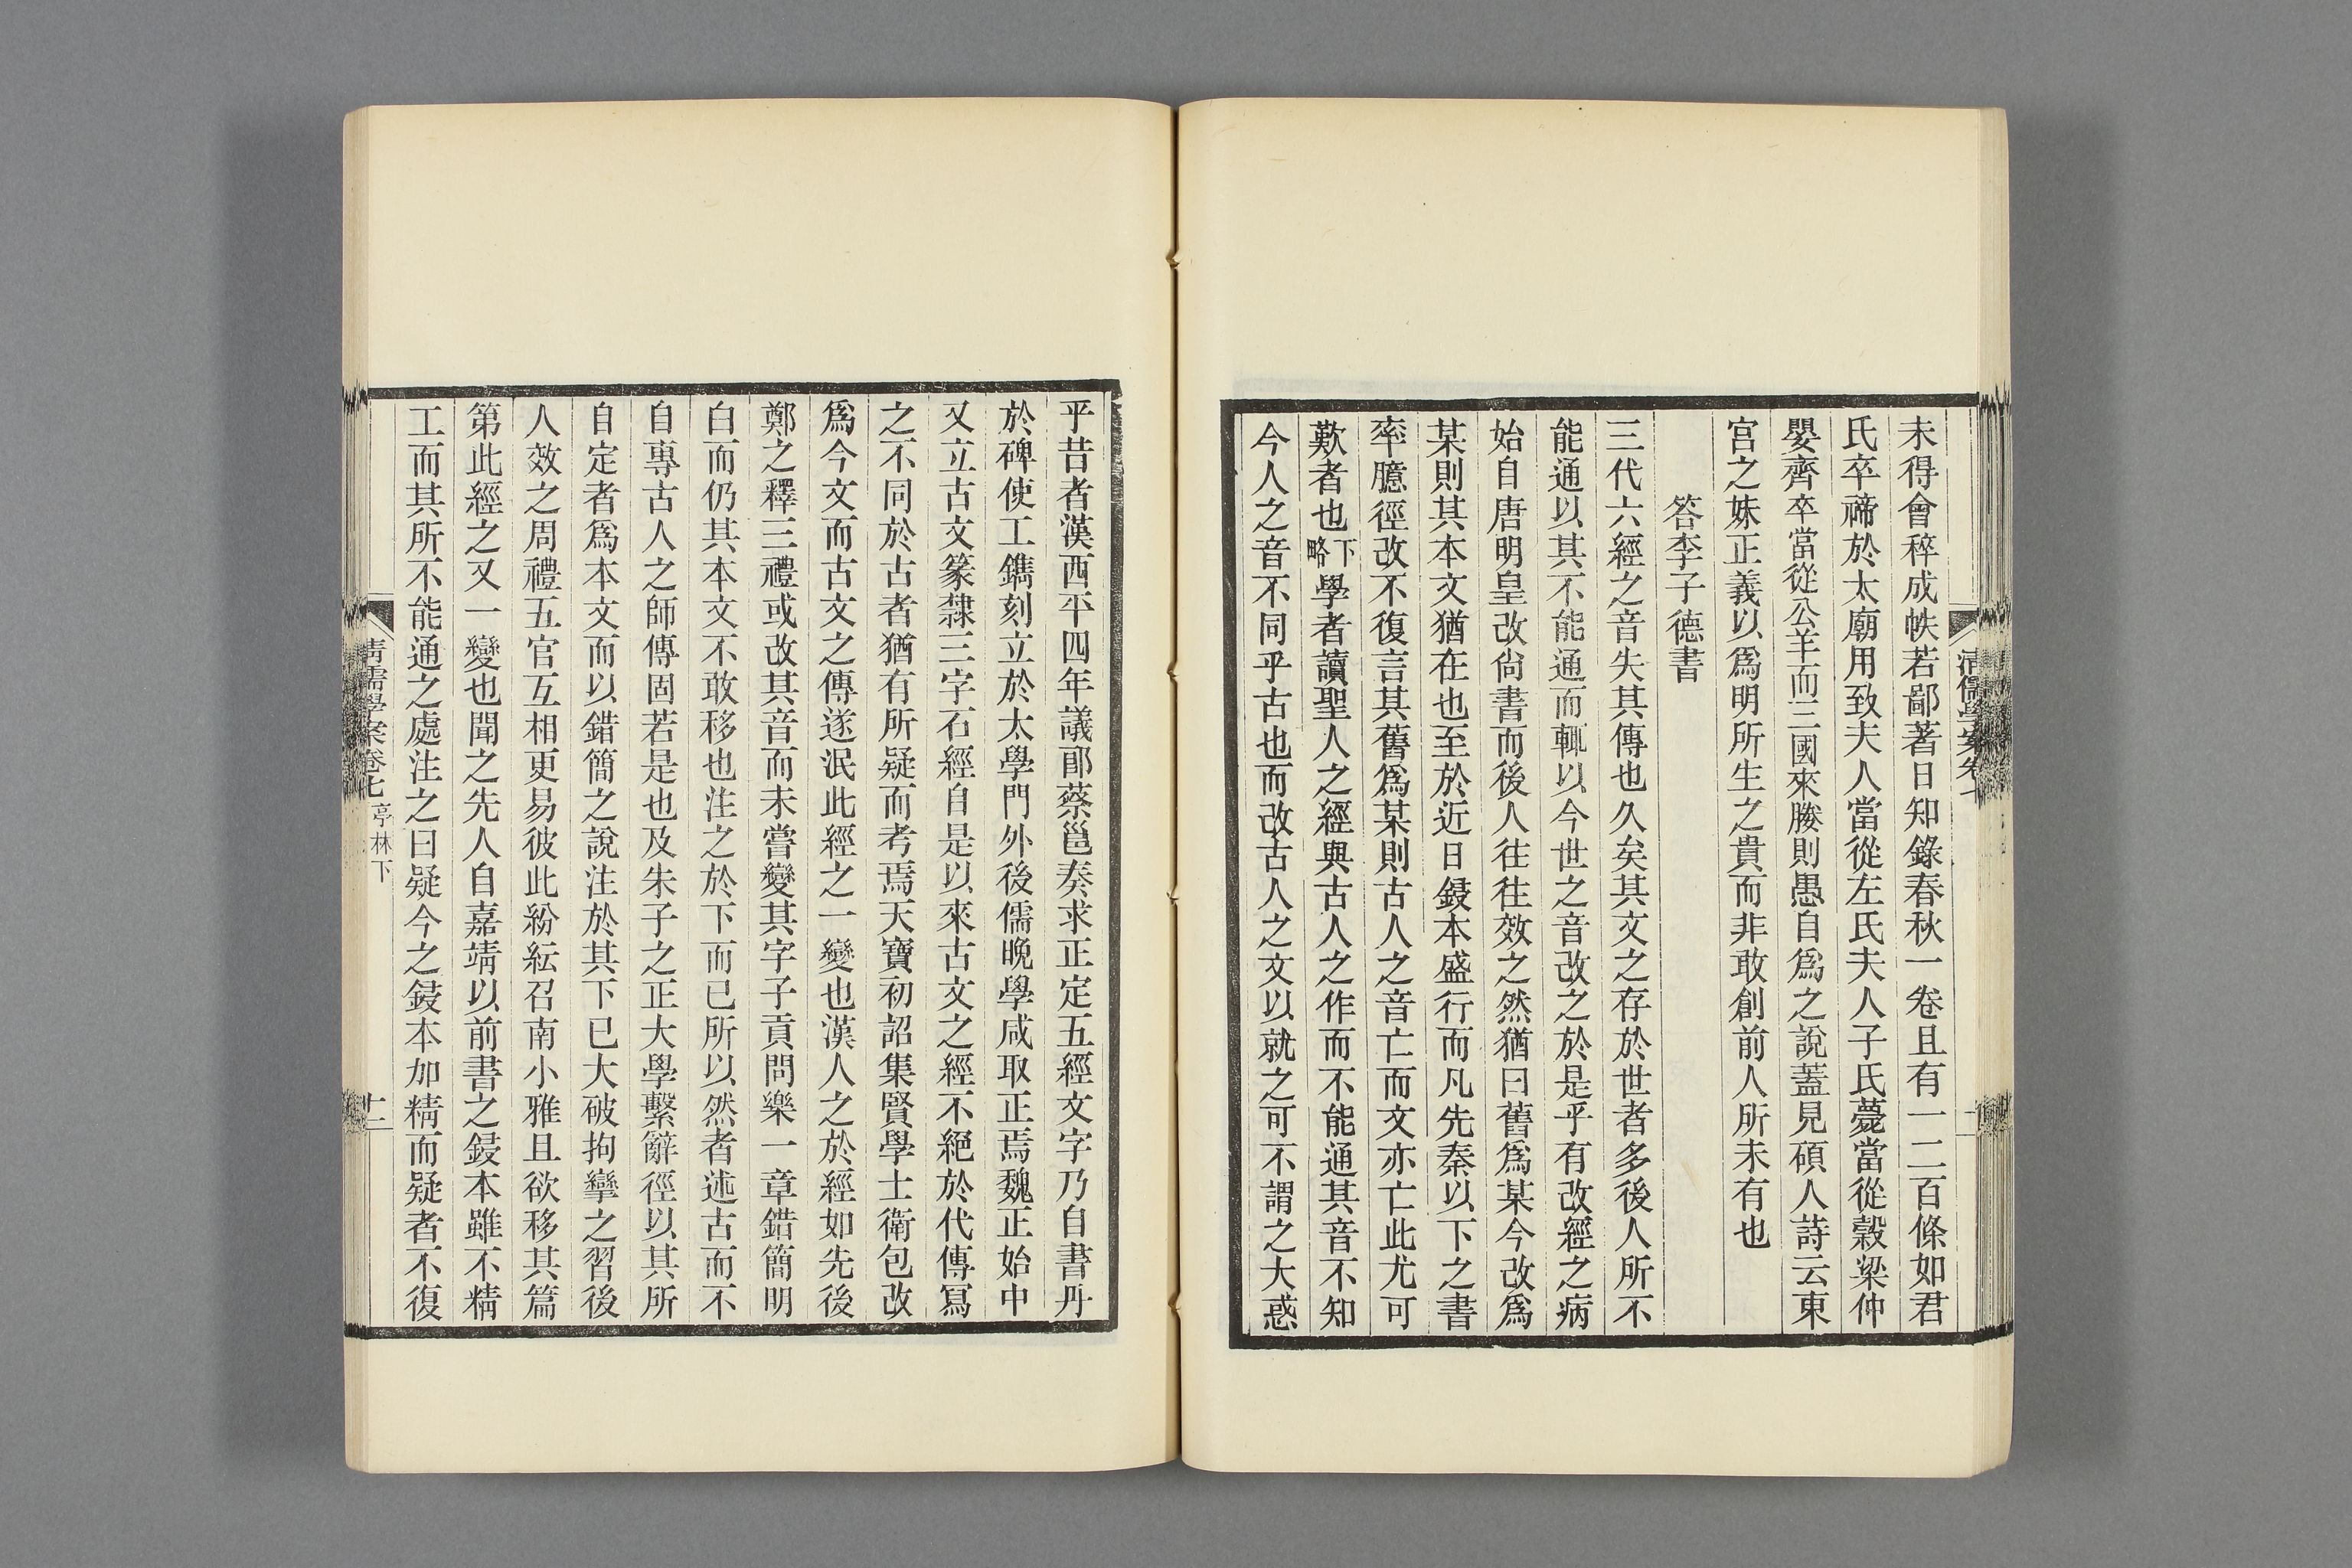 未得會稡成帙若鄙著日知錄春秋一卷且有一二百條如君
氏卒禘於太廟用致夫人當從左氏夫人子氏薨當從穀梁仲
嬰齊卒當從公羊而三國來媵則愚自爲之說蓋見碩人詩云東
宮之妹正義以爲明所生之貴而非敢創前人所未有也
答李子德書
三代六經之音失其傳也久矣其文之存於世者多後人所不
能通以其不能通而輒以今世之音改之於是乎有改經之病
始自唐明皇改尙書而後人往往效之然猶曰舊爲某今改爲
某則其本文猶在也至於近日鋟本盛行而凡先秦以下之書
率臆徑改不復言其舊爲某則古人之音亡而文亦亡此尤可
歎者也下略學者讀聖人之經與古人之作而不能通其音不知
今人之音不同乎古也而改古人之文以就之可不謂之大惑
清儒學案卷七
乎昔者漢西平四年議郎蔡邕奏求正定五經文字乃自書丹
於碑使工鐫刻立於太學門外後儒晚學咸取正焉魏正始中
又立古文篆隸三字石經自是以來古文之經不絕於代傳寫
之不同於古者猶有所疑而考焉天寶初詔集賢學士衛包改
爲今文而古文之傳遂泯此經之一變也漢人之於經如先後
鄭之釋三禮或改其音而未嘗變其字子貢問樂一章錯簡明
白而仍其本文不敢移也注之於下而已所以然者述古而不
自專古人之師傳固若是也及朱子之正大學繫辭徑以其所
自定者爲本文而以錯簡之說注於其下已大破拘攣之習後
人效之周禮五官互相更易彼此紛紜召南小雅且欲移其篇
第此經之又一變也聞之先人自嘉靖以前書之鋟本雖不精
工而其所不能通之處注之曰疑今之鋟本加精而疑者不復
清儒學案卷七 亭林下